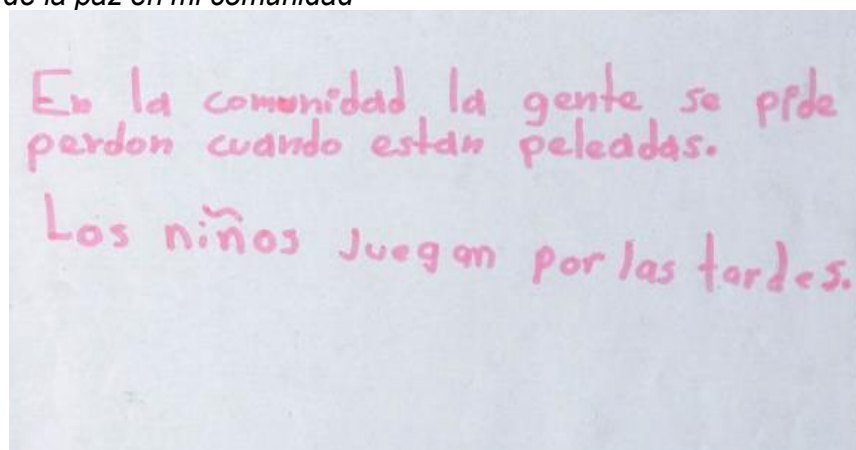 de la paz en mi comunidad
En la comunidad la gente se pide
perdon cuando estan peleadas.
Los niños Juegan por las tardes.